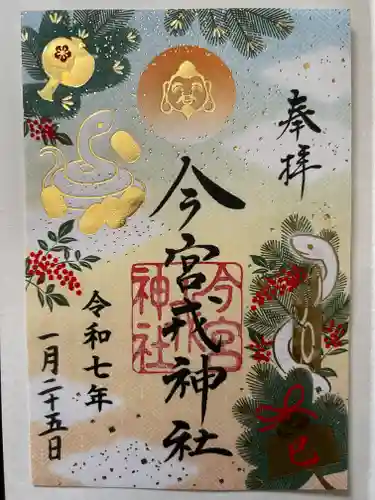 奉拝
今宮戎神社
今宮戎
神社
令和七年
一月二十五日
巳